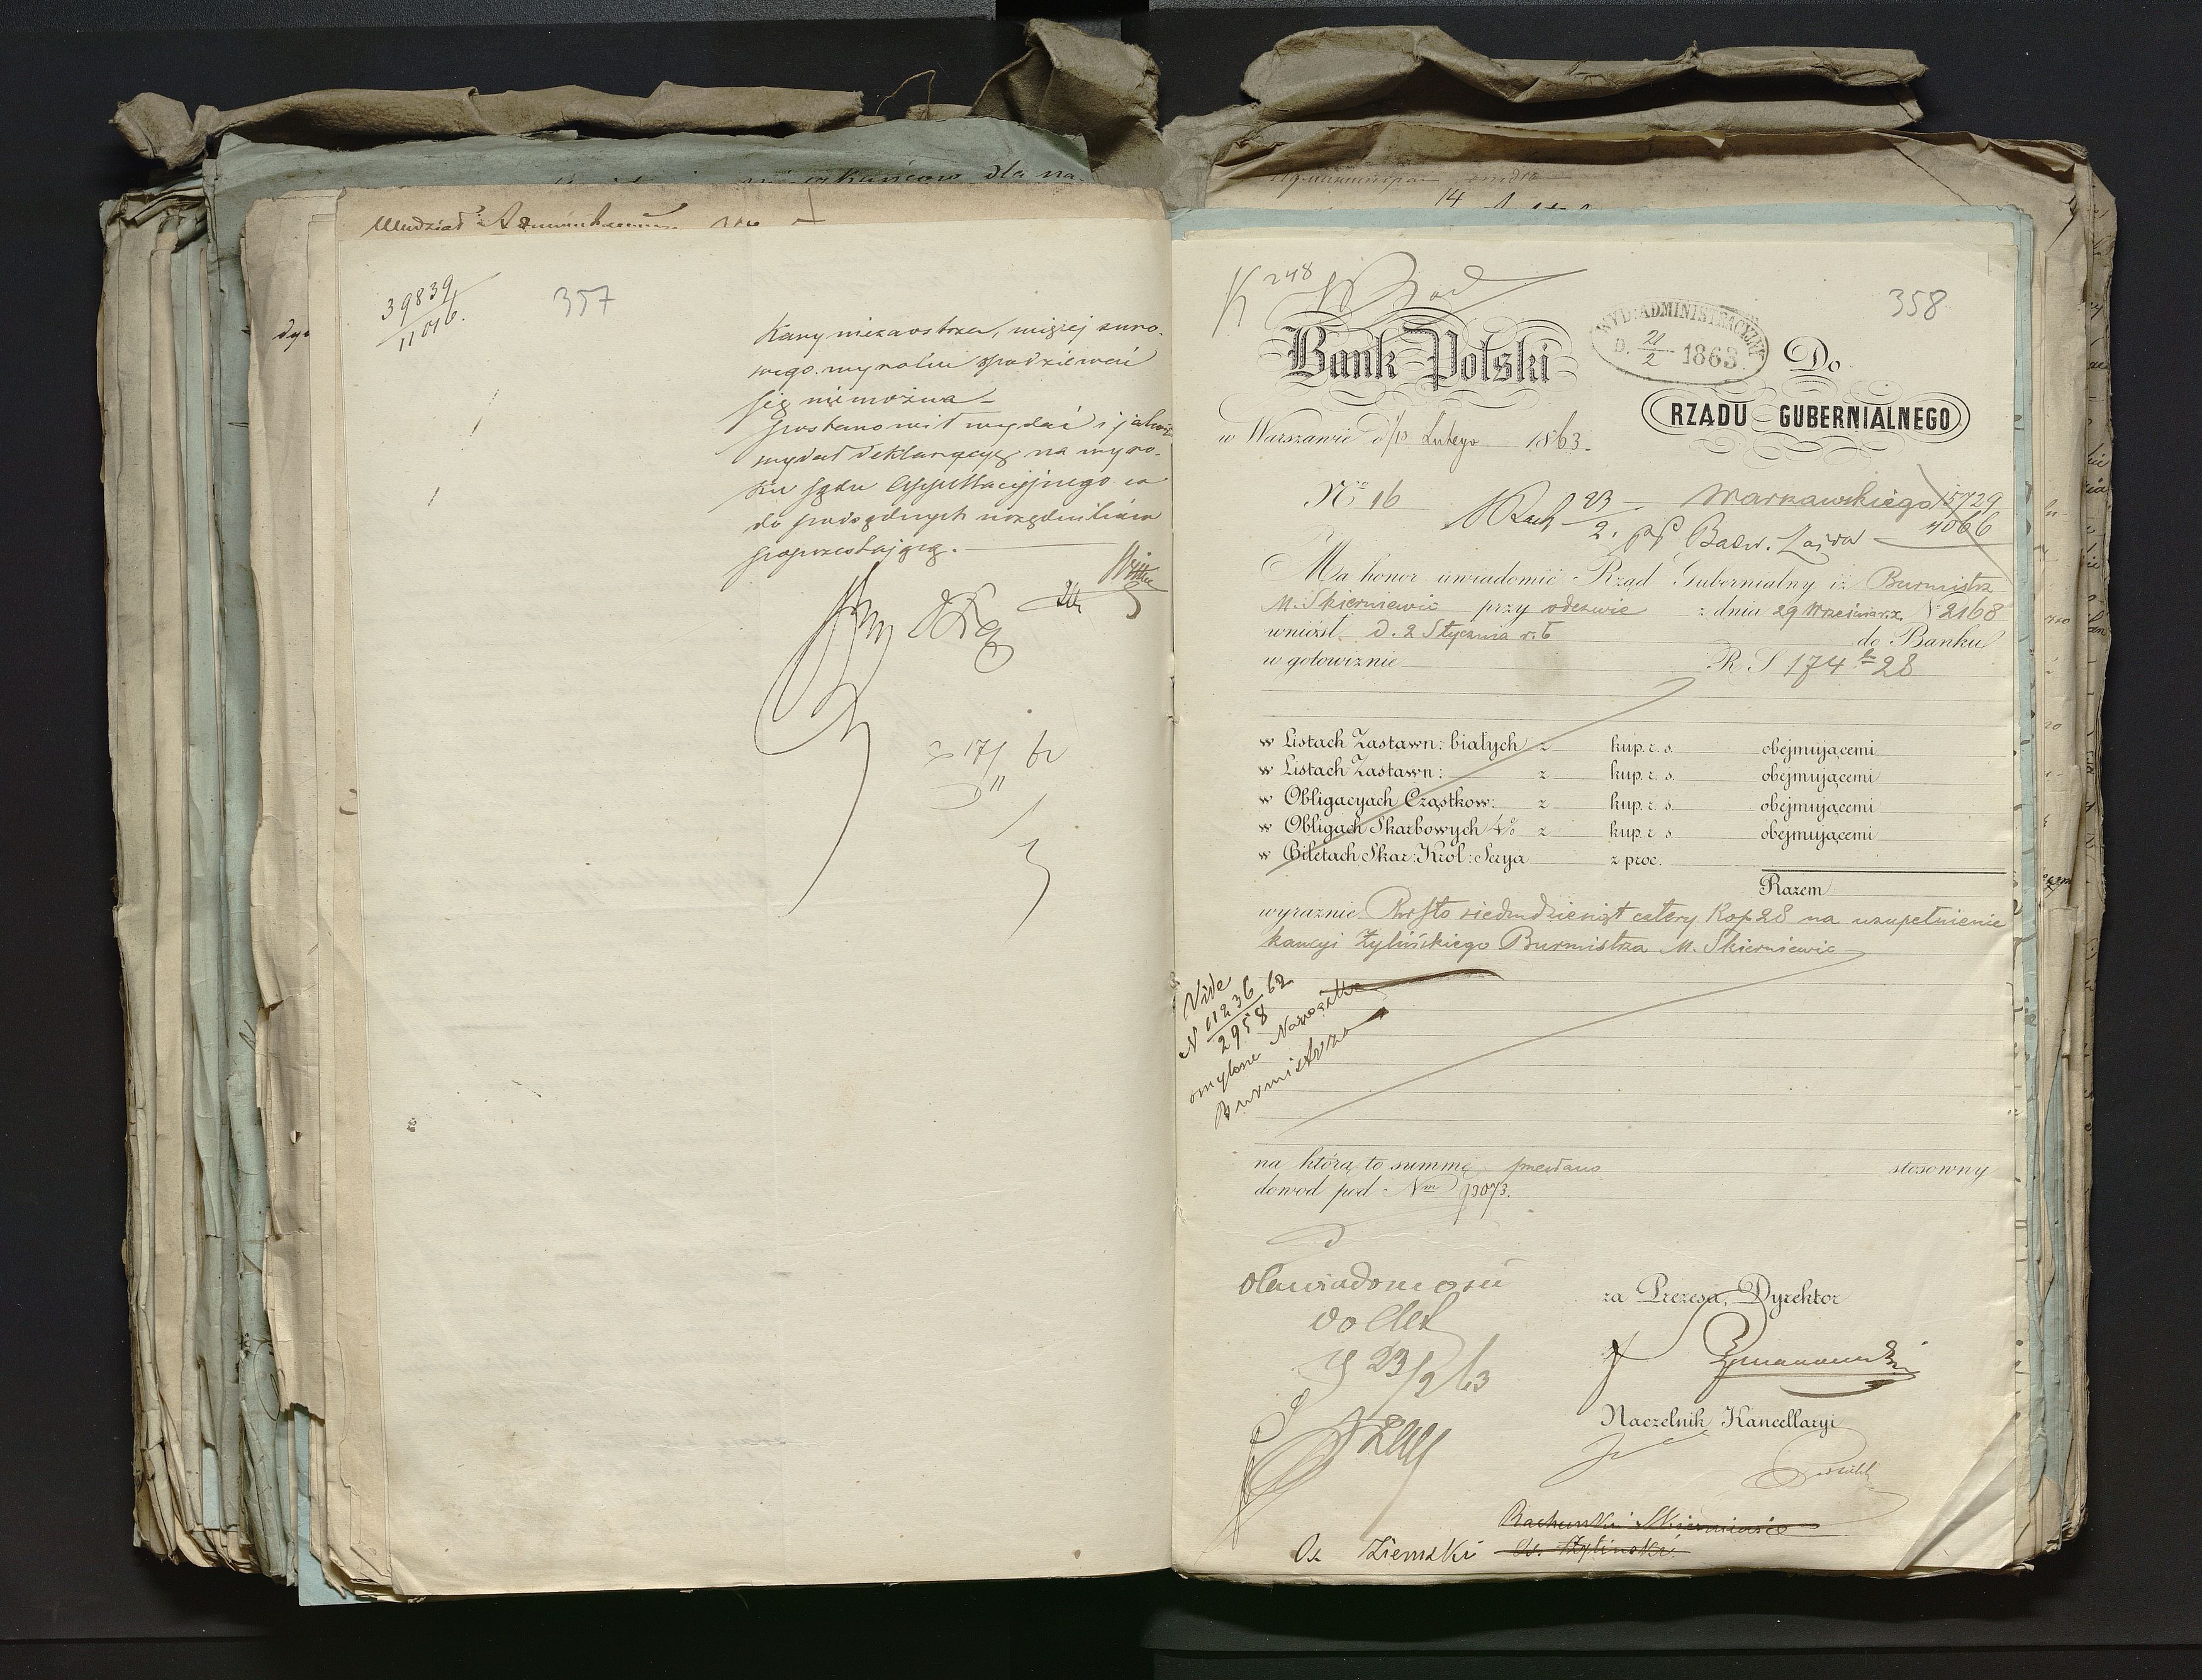 dla na
Wydział
39839
11016.
357
Kary niezaostrza, mniej suro-
wego wyroku spodziewać
się niemożna –
postanowił wydać i jakoż
wydał deklaracyę na wyro-
ku Sądu Appellacyjnego co
do podsądnych urzędników
poprzestającą.
17/
14
K 248
358
WYD: ADMINISTRACYJNY
D. 21/2 1863
Bank Polski
Do
RZĄDU GUBERNIALNEGO
w Warszawie d /13 Lutego 1863.
Nro 16
Warszawskiego 15729
4066
23
2.
Ma honor uwiadomić Rząd Gubernialny iż Burmistrz
M. Skierniewic przy odezwie z dnia 29 Września r.z. N 2168
wniósł d. 2 Stycznia r. b do Banku
w gotowiznie R S 174 k 28
w Listach Zastawn: białych z kup. r. s. obejmującemi
w Listach Zastawn: z kup. r. s. obejmującemi
w Obligacyach Cząstkow: z kup. r. s. obejmującemi
w Obligach Skarbowych 4% z kup. r. s. obejmującemi
w Biletach Skar: Król: Serya z proc.
Razem
wyraznie Rs sto siedmdziesiąt cztery Kop 28 na uzupełnienie
kaucyi Żylińskiego Burmistrza M. Skierniewic
Vide
N 11236 62
2958
omylone Nazwisko
Burmistrza
na którą to summę przesłano stosowny
dowód pod Nm 13073.
do Akt
23/2 63
za Prezesa, Dyrektor
Naczelnik Kancellaryi
Rachunki Skierniewic
Os Ziemski Os. Żyliński